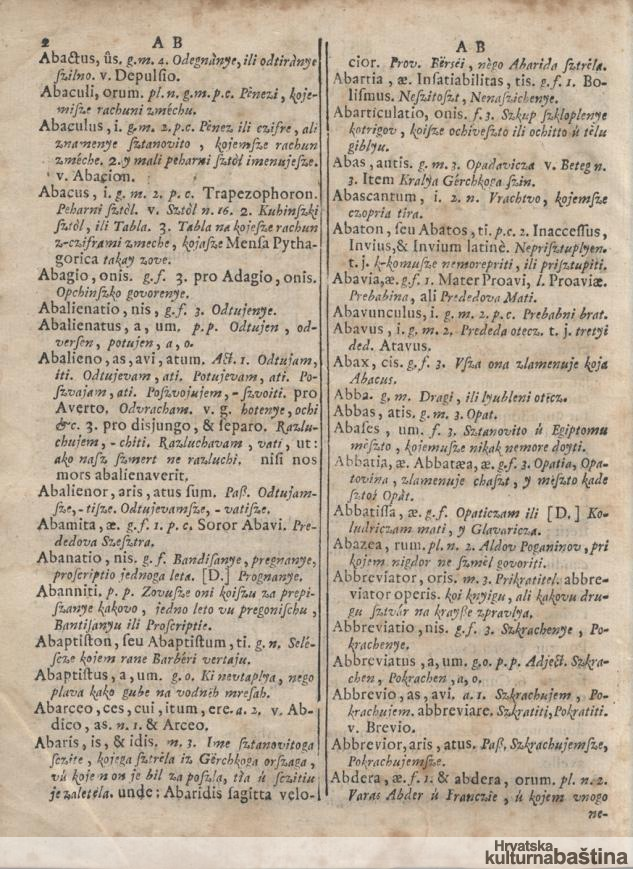 2 A B
Abactus, ûs. g.m. 4. Odegnànye, ili odtirànye
ſzilno. v. Depulſio.
Abaculi, orum. pl. n. g.m. p.c. Pènezi, koje-
miſze rachuni zméchu.
Abaculus, i. g.m. 2. p.c. Pênez ili czifre, ali
znamenye ſztanovito, kojemſze rachun
zméche. 2. y mali peharni ſztòl imenujeſze.
v. Abacion.
Abacus, i. g. m. 2. p. c. Trapezophoron.
Peharni ſztòl. v. Sztòl n. 16. 2. Kuhinſzki
ſztòl, ili Tabla. 3. Tabla na kojeſze rachun
z-cziframi zmeche, kojaſze Menſa Pytha-
gorica takay zove.
Abagio, onis. g.f. 3. pro Adagio, onis.
Opchinſzko govorenye.
Abalienatio, nis, g.f. 3. Odtujenye.
Abalienatus, a, um. p.p. Odtujen, od-
verſen, potujen, a, o.
Abalieno, as, avi, atum. Act. 1. Odtujam,
iti. Odtujevam, ati. Potujevam, ati. Po-
ſzvajam, ati. Poſzvojujem, - ſzvoiti. pro
Averto, Odvracham. v. g. hotenye, ochi
&c. 3. pro disjungo, & ſeparo. Razlu-
chujem, - chiti. Razluchavam, vati, ut:
ako naſz ſzmert ne razluchi. niſi nos
mors abalienaverit.
Abalienor, aris, atus ſum. Paſſ. Odtujam-
ſze, - tiſze. Odtujevamſze, - vatiſze.
Abamita, æ. g.f. 1. p.c. Soror Abavi. Pre-
dedova Szeſztra.
Abanatio, nis. g. f. Bandiſanye, pregnanye,
proſcriptio jednoga leta. [D.] Prognanye.
Abanniti. p. p. Zovuſze oni koiſzu za prepi-
ſzanye kakovo, jedno leto vu pregoniſchu,
Bantiſanyu ili Proſcriptie.
Abaptiſton, ſeu Abaptiſtum, ti. g. n. Selé-
ſcze kojem rane Barbéri vertaju.
Abaptiſtus, a, um. g.o. Ki nevtaplya, nego
plava kako gube na vodnéh mreſah.
Abarceo, ces, cui, itum, ere. a. 2. v. Ab-
dico, as. n. 1. & Arceo.
Abaris, is, & idis. m. 3. Ime ſztanovitoga
ſczite, kojega ſztrêla iz Gêrchkoga orſzaga,
vù koje n on je bil zapoſzla, tia ù ſczitiu
je zaletêla. unde: Abaridis ſagitta velo-
A B
cior. Prov. Bërséi, nègo Abarida ſztrêla.
Abartia, æ. Inſatiabilitas, tis. g.f. 1. Bo-
liſmus. Neſzitoſzt, Nenaſzichenye.
Abarticulatio, onis. f. 3. Szkup ſzkloplenye
kotrigov, koiſze ochiveſztò ili ochitto ù tèlu
giblyu.
Abas, antis. g. m. 3. Opadavicza v. Beteg n.
3. Item Kralya Gêrchkoga ſzin.
Abascantum, i. 2. n. Vrachtvo, kojemſze
czopria tira.
Abaton, ſeu Abatos, ti. p.c. 2. Inacceſſus,
Invius, & Invium latinè. Nepriſztuplyen.
t. j. k-komuſze nemorepriti, ili priſztupiti.
Abavia, æ. g.f. 1. Mater Proavi, l. Proaviæ.
Prebabina, ali Prededova Mati.
Abavunculus, i. g. m. 2. p.c. Prebabni brat.
Abavus, i. g. m. 2. Prededa otecz. t. j. tretyi
ded. Atavus.
Abax, cis. g. f. 3. Vſza ona zlamenuje koja
Abacus.
Abba. g. m. Dragi, ili lyubleni otècz.
Abbas, atis. g. m. 3. Opat.
Abaſes, um. f. 3. Sztanovito ù Egiptomu
mèſzto, kojemuſze nikak nemore doyti.
Abbatia, æ. Abbatæa, æ. g.f. 3. Opatia, Opa-
tovina, zlamenuje chaſzt, y mèſzto kade
ſztoi Opàt.
Abbatiſſa, æ. g.f. Opaticzam ili [D.] Ko-
ludriczam mati, y Glavaricza.
Abazea, rum. pl. n. 2. Aldov Poganinov, pri
kojem nigdor ne ſzmèl govoriti.
Abbreviator, oris. m. 3. Prikratitel. abbre-
viator operis. koi knyigu, ali kakovu dru-
gu ſztvàr na krayſſe zpravlya.
Abbreviatio, nis. g.f. 3. Szkrachenye, Po-
krachenye.
Abbreviatus, a, um. g.o. p. p. Adject. Szkra-
chen, Pokrachen, a, o.
Abbrevio, as, avi. a. 1. Szkrachujem, Po-
krachujem. abbreviare. Szkratiti, Pokratiti.
v. Brevio.
Abbrevior, aris, atus. Paſſ. Szkrachujemſze,
Pokrachujemſze.
Abdera, æ. f. 1. & abdera, orum. pl. n. 2.
Varas Abder ù Franczie, ù kojem vnogo
ne-
Hrvatska
kulturnabaština